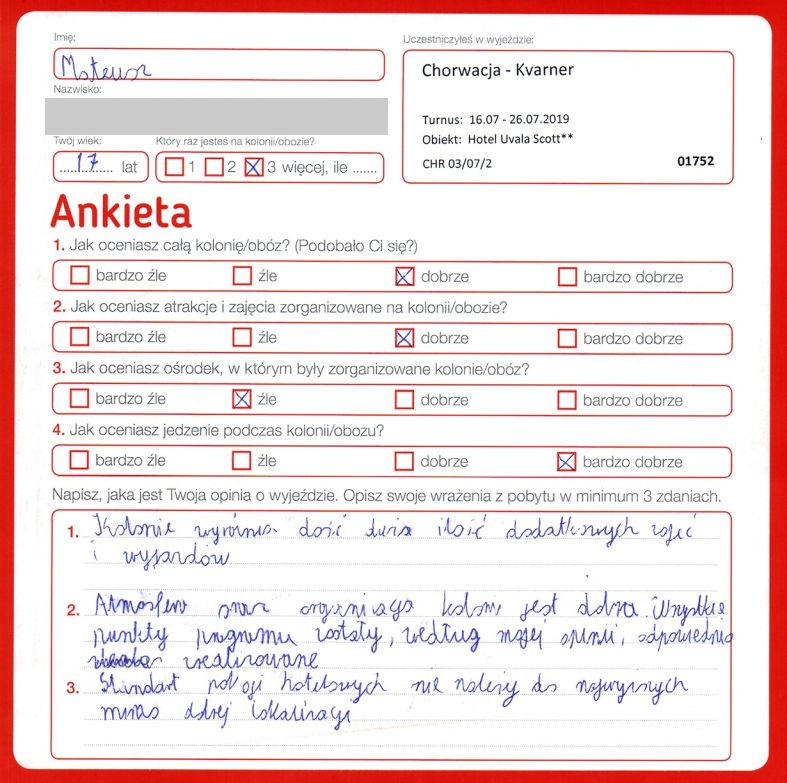 Imię:
Mateusz
Nazwisko:
Twój wiek:
17 lat
Który raz jesteś na kolonii/obozie?
1 2 3 więcej, ile .......
Uczestniczyłeś w wyjeździe:
Chorwacja - Kvarner
Turnus: 16.07 - 26.07.2019
Obiekt: Hotel Uvala Scott**
CHR 03/07/2 01752
Ankieta
1. Jak oceniasz całą kolonię/obóz? (Podobało Ci się?)
bardzo źle źle dobrze bardzo dobrze
2. Jak oceniasz atrakcje i zajęcia zorganizowane na kolonii/obozie?
bardzo źle źle dobrze bardzo dobrze
3. Jak oceniasz ośrodek, w którym były zorganizowane kolonie/obóz?
bardzo źle źle dobrze bardzo dobrze
4. Jak oceniasz jedzenie podczas kolonii/obozu?
bardzo źle źle dobrze bardzo dobrze
Napisz, jaka jest Twoja opinia o wyjeździe. Opisz swoje wrażenia z pobytu w minimum 3 zdaniach.
1. Kolonie wyróżnia dość duża ilość dodatkowych zajęć
i wyjazdów
2. Atmosfera oraz organizacja kolonii jest dobra. Wszystkie
punkty programu zostały, według mojej opinii, odpowiednio
zrealizowane
3. Standart pokoji hotelowych nie należy do najwyższych
mimo dobrej lokalizacji